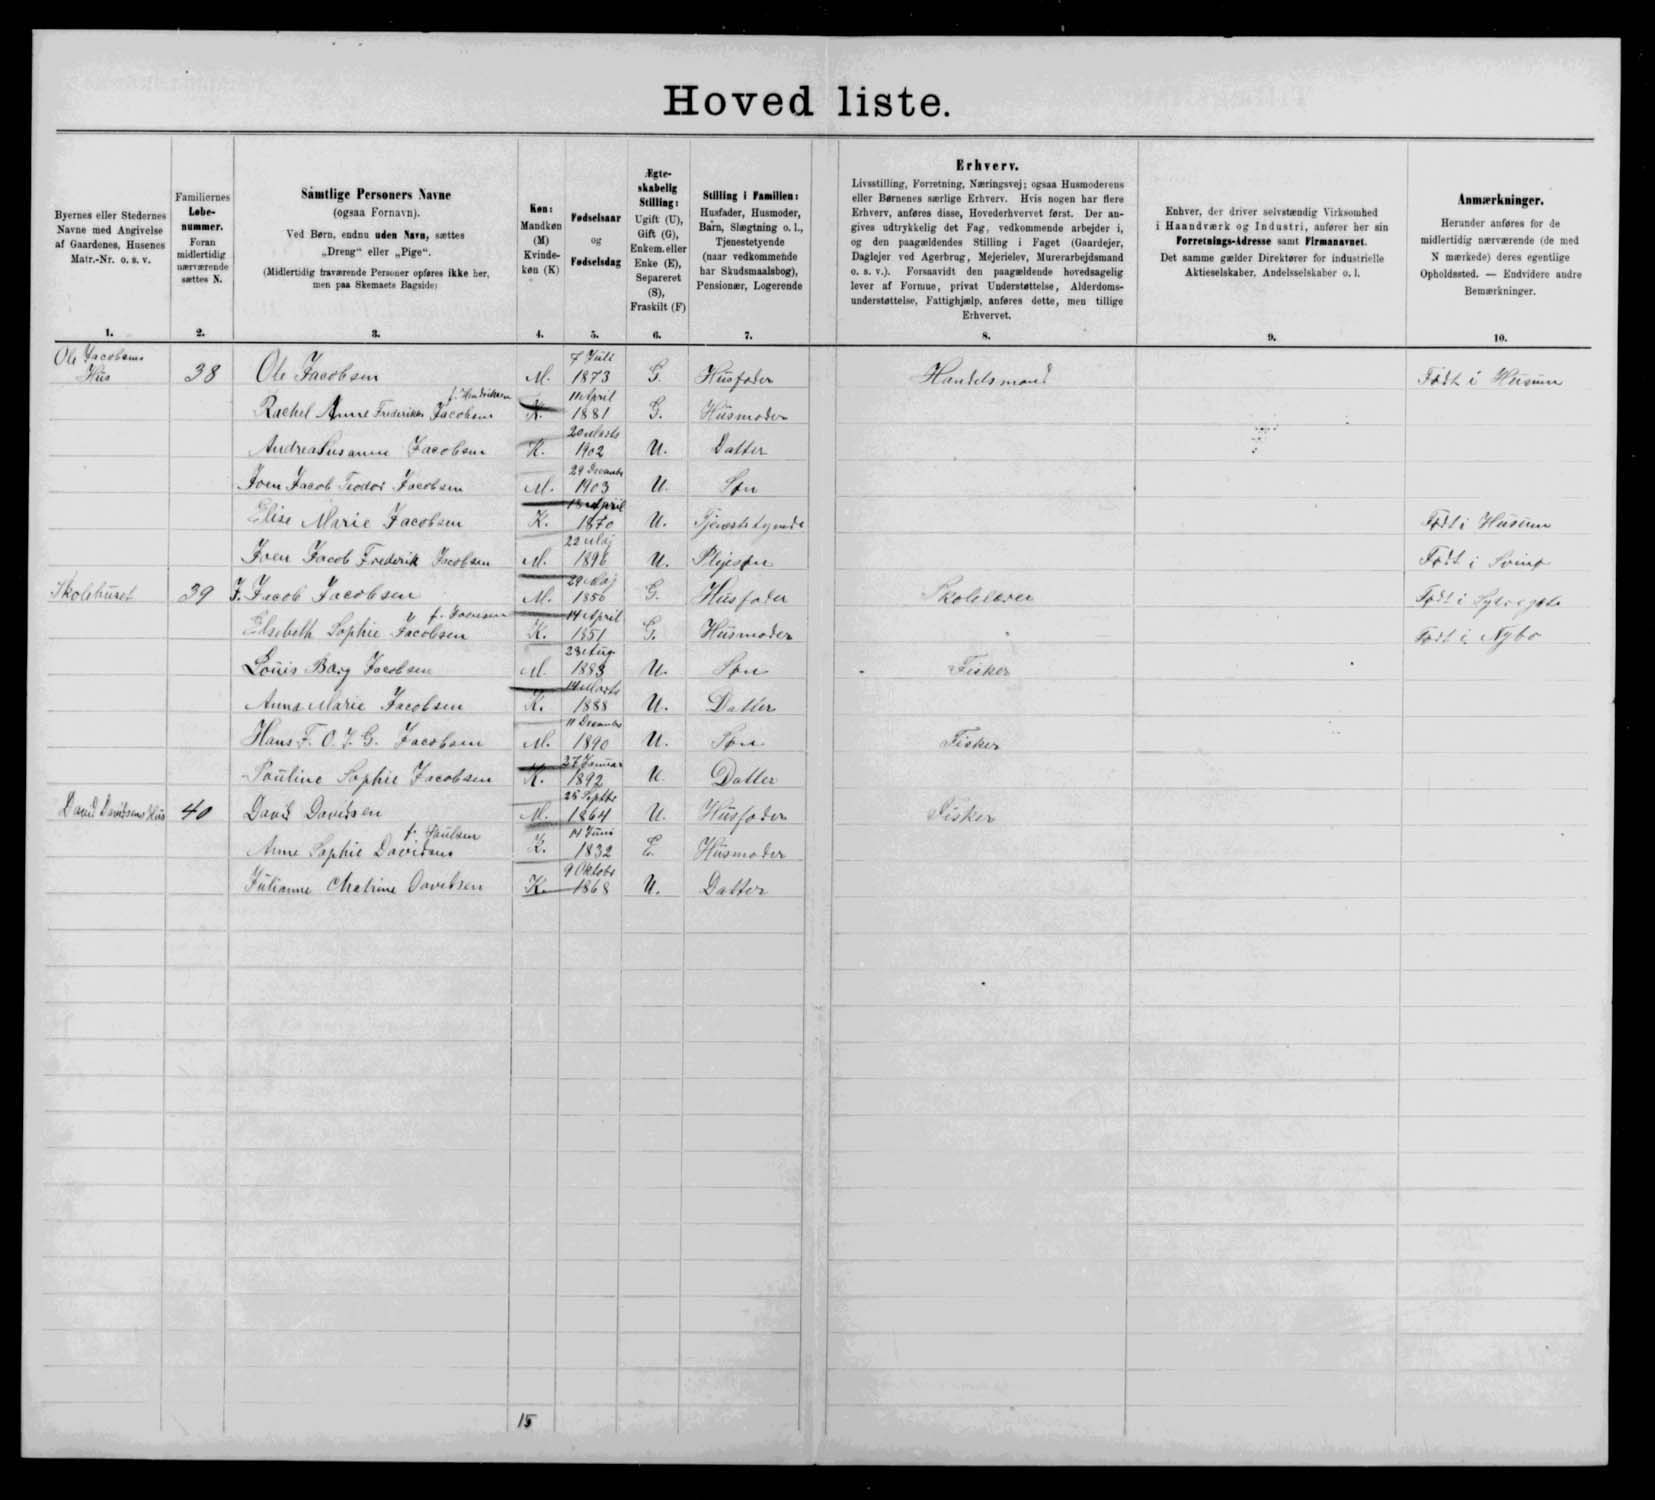 Hoved liste.
Byernes eller Stedernes
Navne med Angivelse
af Gaardenes, Husenes
Matr.-Nr. o. s. v.
1.
Familiernes
Løbe-
nummer.
Foran
midlertidig
nærværende
sættes N.
2.
Samtlige Personers Navne
(ogsaa Fornavn).
Ved Børn, endnu uden Navn, sættes
„Dreng“ eller „Pige“.
(Midlertidig fraværende Personer opføres ikke her,
men paa Skemaets Bagside)
3.
Køn:
Mandkøn
(M)
Kvinde-
køn (K)
4.
Fødselsaar
og
Fødselsdag
5.
Ægte-
skabelig
Stilling:
Ugift (U),
Gift (G),
Enkem. eller
Enke (E),
Separeret
(S),
Fraskilt (F)
6.
Stilling i Familien:
Husfader, Husmoder,
Barn, Slægtning o. l.,
Tjenestetyende
(naar vedkommende
har Skudsmaalsbog),
Pensionær, Logerende
7.
Erhverv.
Livsstilling, Forretning, Næringsvej; ogsaa Husmoderens
eller Børnenes særlige Erhverv. Hvis nogen har flere
Erhverv, anføres disse, Hovederhvervet først. Der an-
gives udtrykkelig det Fag, vedkommende arbejder i,
og den paagældendes Stilling i Faget (Gaardejer,
Daglejer ved Agerbrug, Mejerielev, Murerarbejdsmand
o. s. v.). Forsaavidt den paagældende hovedsagelig
lever af Formue, privat Understøttelse, Alderdoms-
understøttelse, Fattighjælp, anføres dette, men tillige
Erhvervet.
8.
Enhver, der driver selvstændig Virksomhed
i Haandværk og Industri, anfører her sin
Forretnings-Adresse samt Firmanavnet.
Det samme gælder Direktører for industrielle
Aktieselskaber, Andelsselskaber o. l.
9.
Anmærkninger.
Herunder anføres for de
midlertidig nærværende (de med
N mærkede) deres egentlige
Opholdssted. — Endvidere andre
Bemærkninger.
10.
Ole Jacobsens
Hus 38 Ole Jacobsen M. 7 Juli 1873 G. Husfader Handelsmand Født i Husum
Rachel Anne Frederikke Jacobsen f. Hendriksen K. 11 April 1881 G. Husmoder
Andrea Susanne Jacobsen K. 20 Marts 1902 U. Datter
Joen Jacob Teodor Jacobsen M. 29 December 1903 U. Søn
Elise Marie Jacobsen K. April 1870 U. Tjenestetyende Født i Husum
Joen Jacob Frederik Jacobsen M. 22 Maj 1896 U. Plejesøn Født i Svinø
Skolehuset 39 J. Jacob Jacobsen M. 29 Maj 1856 G. Husfader Skolelærer Født i
Elsebeth Sophie Jacobsen f. Joensen K. 14 April 1851 G. Husmoder Født i Nybø
Louis Berg Jacobsen M. 23 Aug 1883 U. Søn Fisker
Anna Marie Jacobsen K. 14 Marts 1888 U. Datter
Hans F. O. J. G. Jacobsen M. 11 December 1890 U. Søn Fisker
Pauline Sophie Jacobsen K. 27 Januar 1892 U. Datter
David Davidsens Hus 40 David Davidsen M. 25 Septbr 1864 U. Husfader Fisker
Anne Sophie Davidsen f. Paulsen K. 14 Juni 1832 E. Husmoder
Julianne Chatrine Davidsen K. 9 Oktober 1868 U. Datter
15